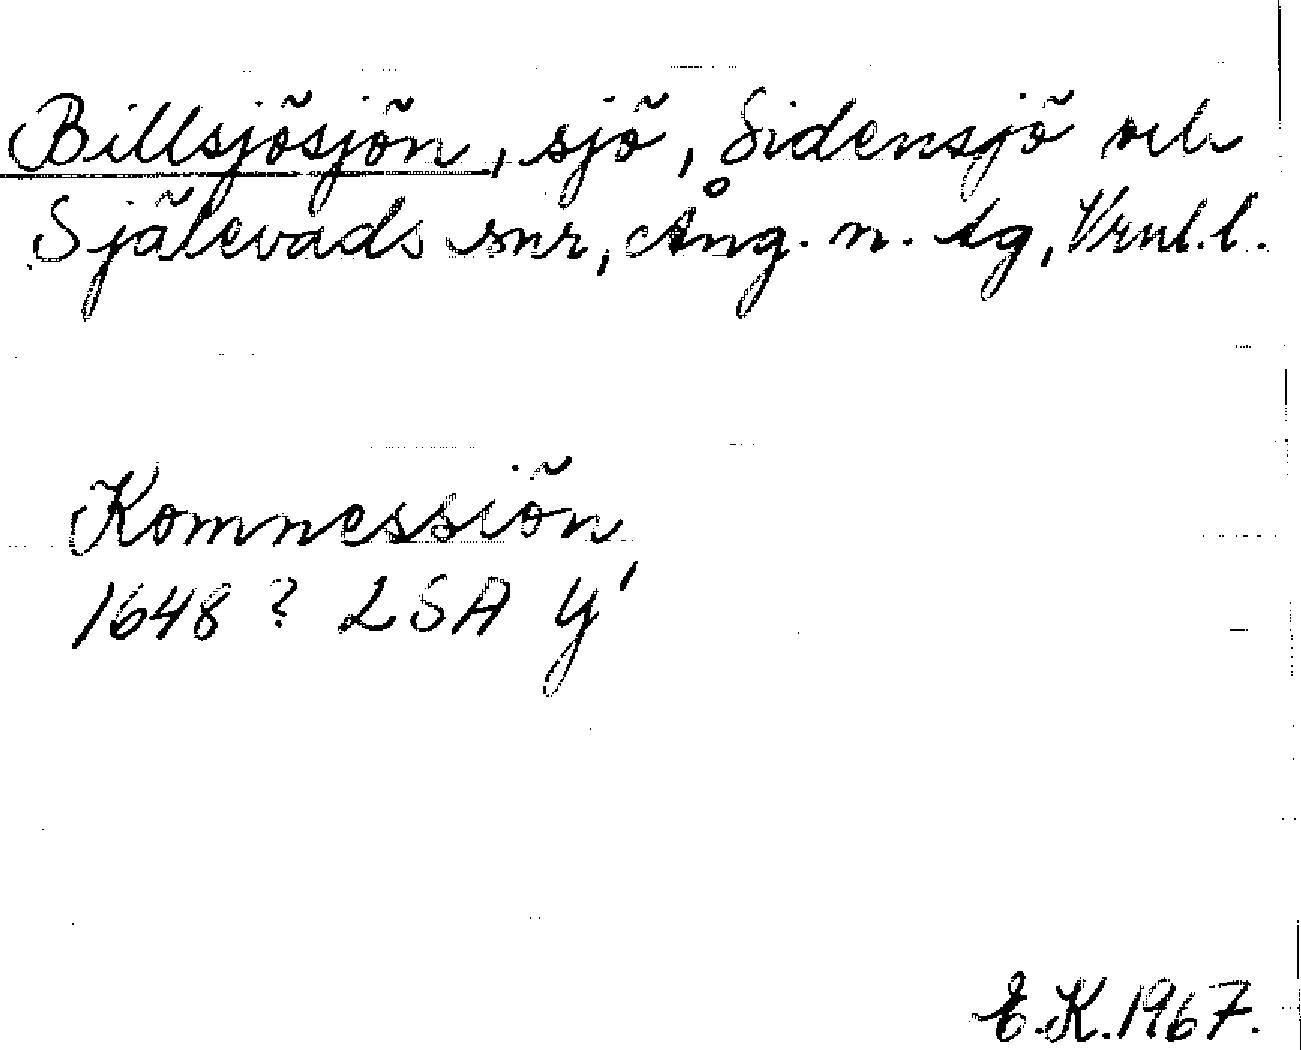 Billsjösjön, sjö, Sidensjö och
Själevads snr, Ång. n. dg, Vrnl. l.
Komnessiön
1648? LSA Y¹
E.K. 1967.